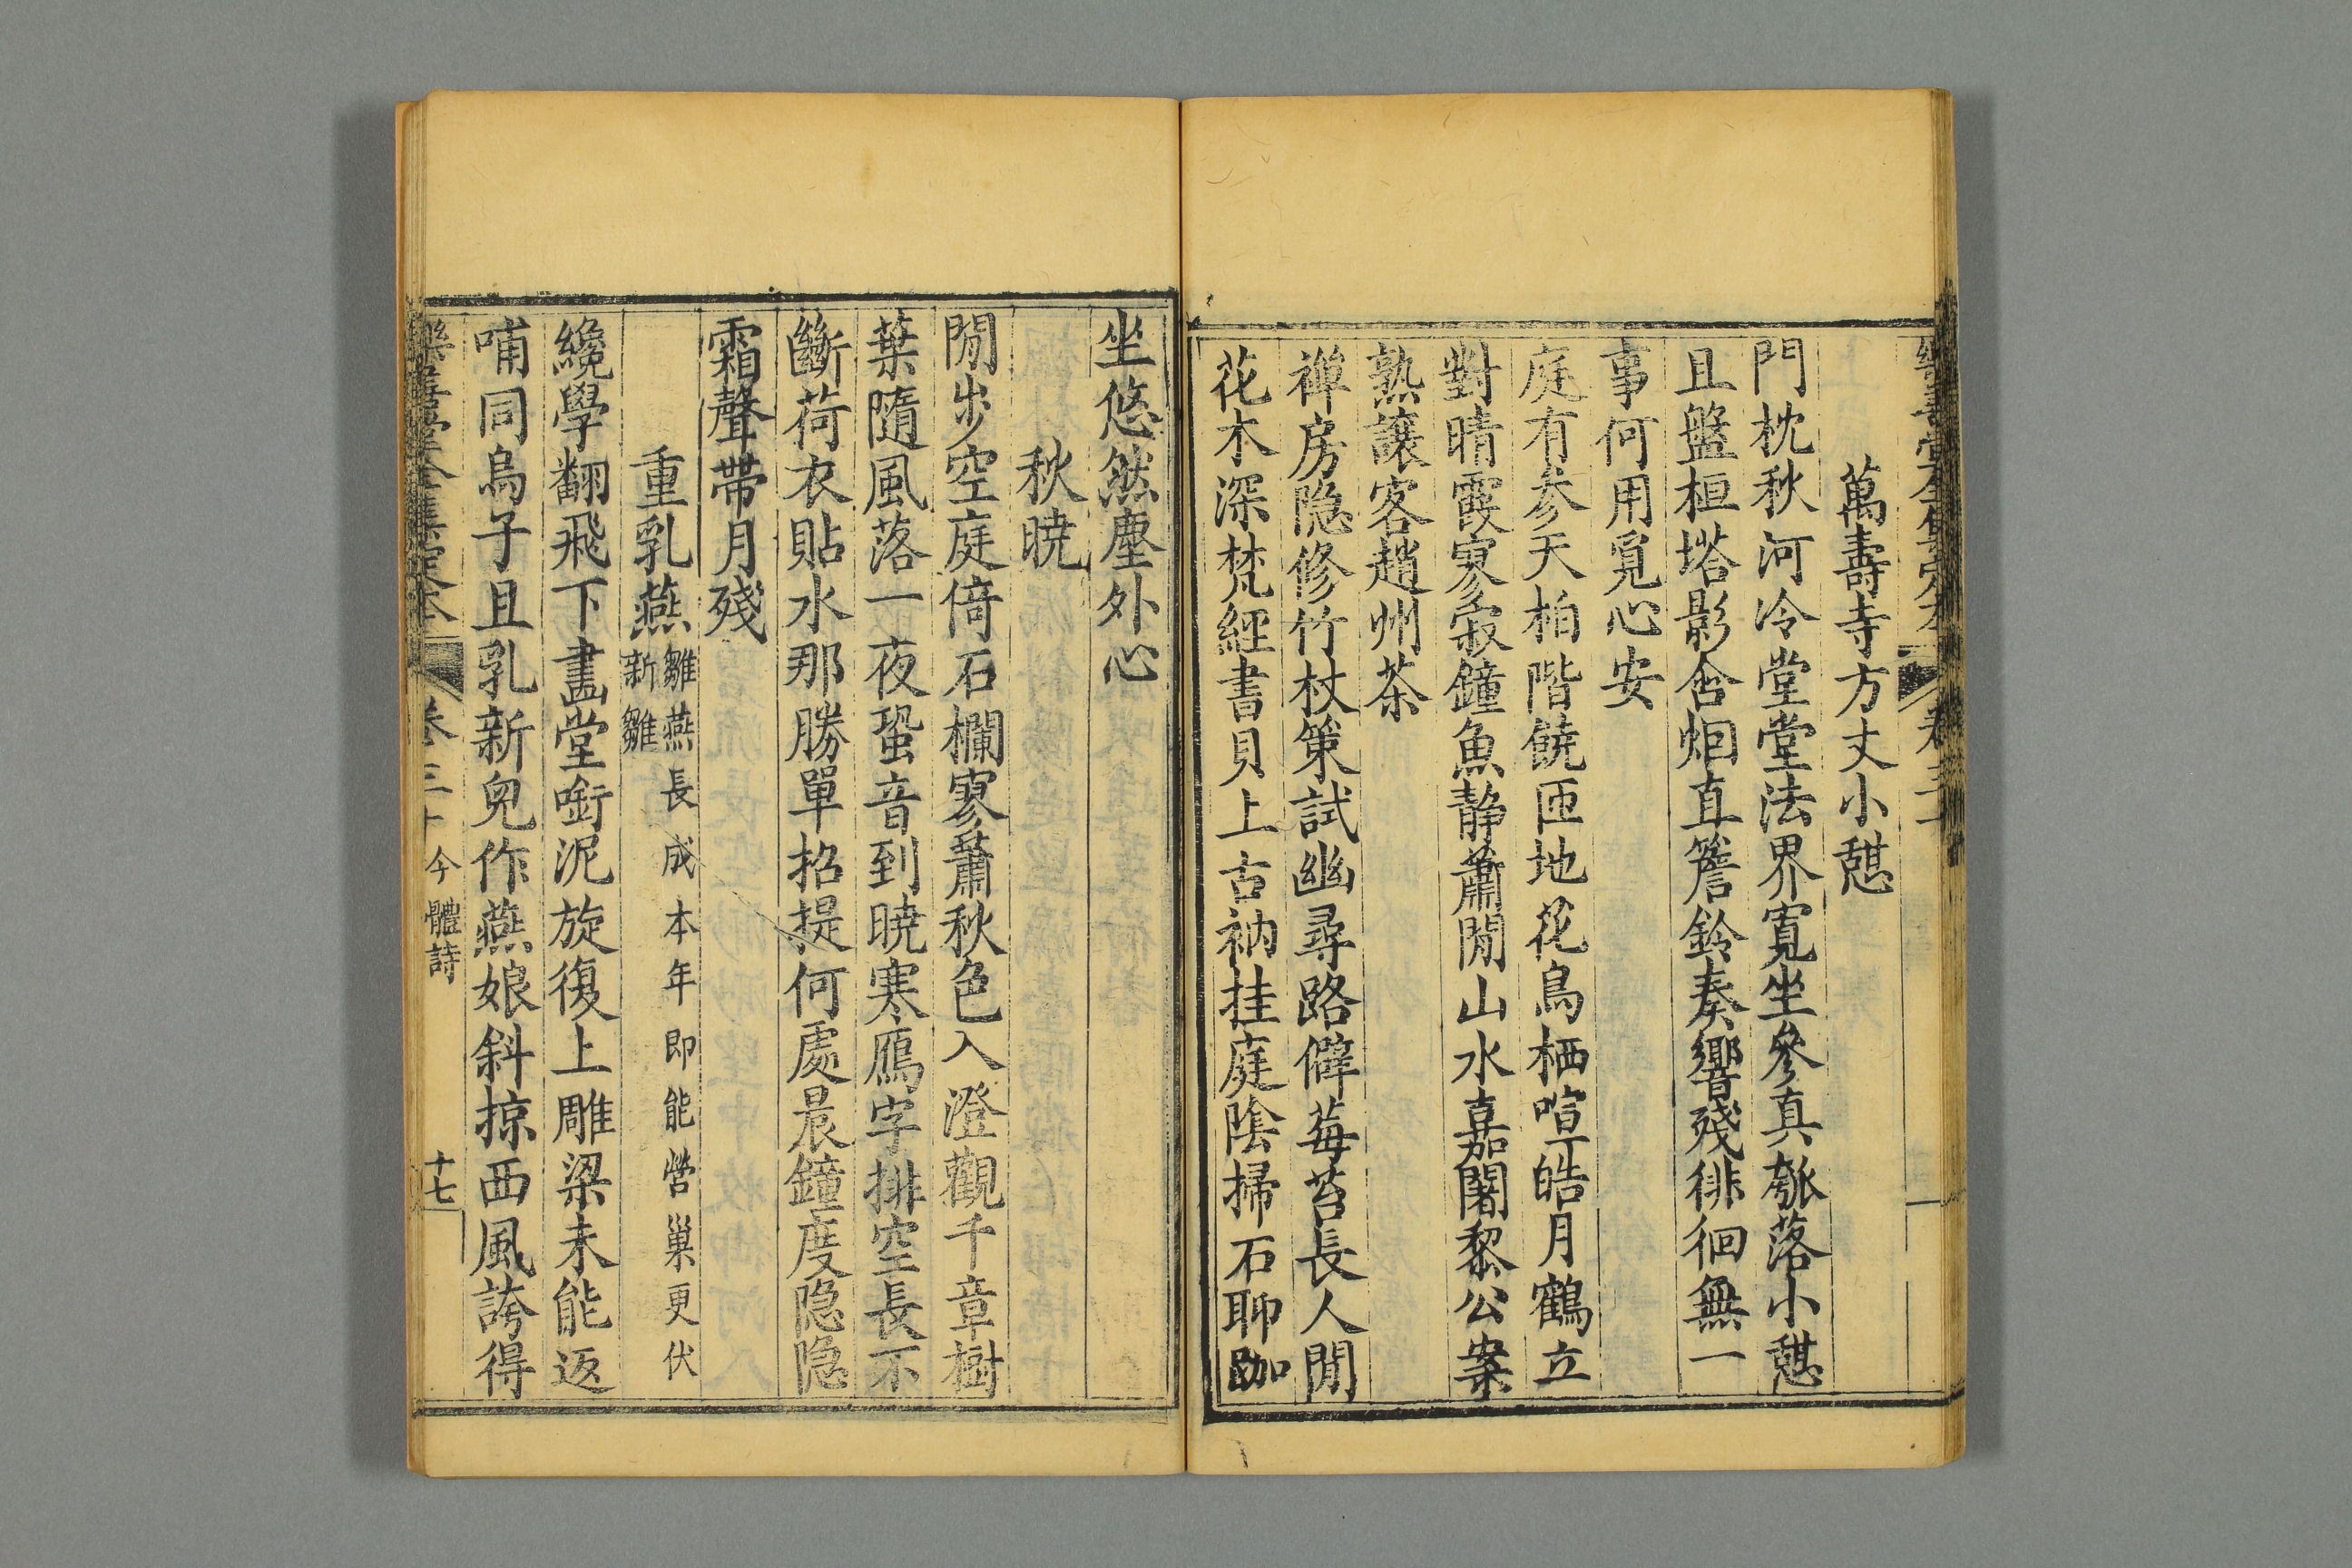 樂善堂全集定本 卷三十
萬壽寺方丈小憇
門枕秋河冷堂堂法界寬坐參真瓠落小憇
且盤桓塔影含烟直簷鈴奏響殘徘徊無一
事何用覓心安
庭有參天柏階饒匝地花鳥栖喧皓月鶴立
對晴霞寥寂鐘魚静蕭閒山水嘉闍黎公案
熟讓客趙州茶
禅房隐修竹杖策試幽尋路僻莓苔長人閒
花木深梵經書貝上古衲挂庭陰掃石聊跏
坐悠然塵外心
秋曉
閒步空庭倚石欄寥蕭秋色入澄觀千章樹
葉隨風落一夜蛩音到曉寒鴈字排空長不
斷荷衣貼水那勝單招提何處晨鐘度隐隐
霜聲帶月殘
重乳燕雛燕長成本年即能營巢更伏
新雛
纔學翻飛下畵堂啣泥旋復上雕梁未能返
哺同烏子且乳新兒作燕娘斜掠西風誇得
樂善堂全集定本 卷三十 今體詩 十七